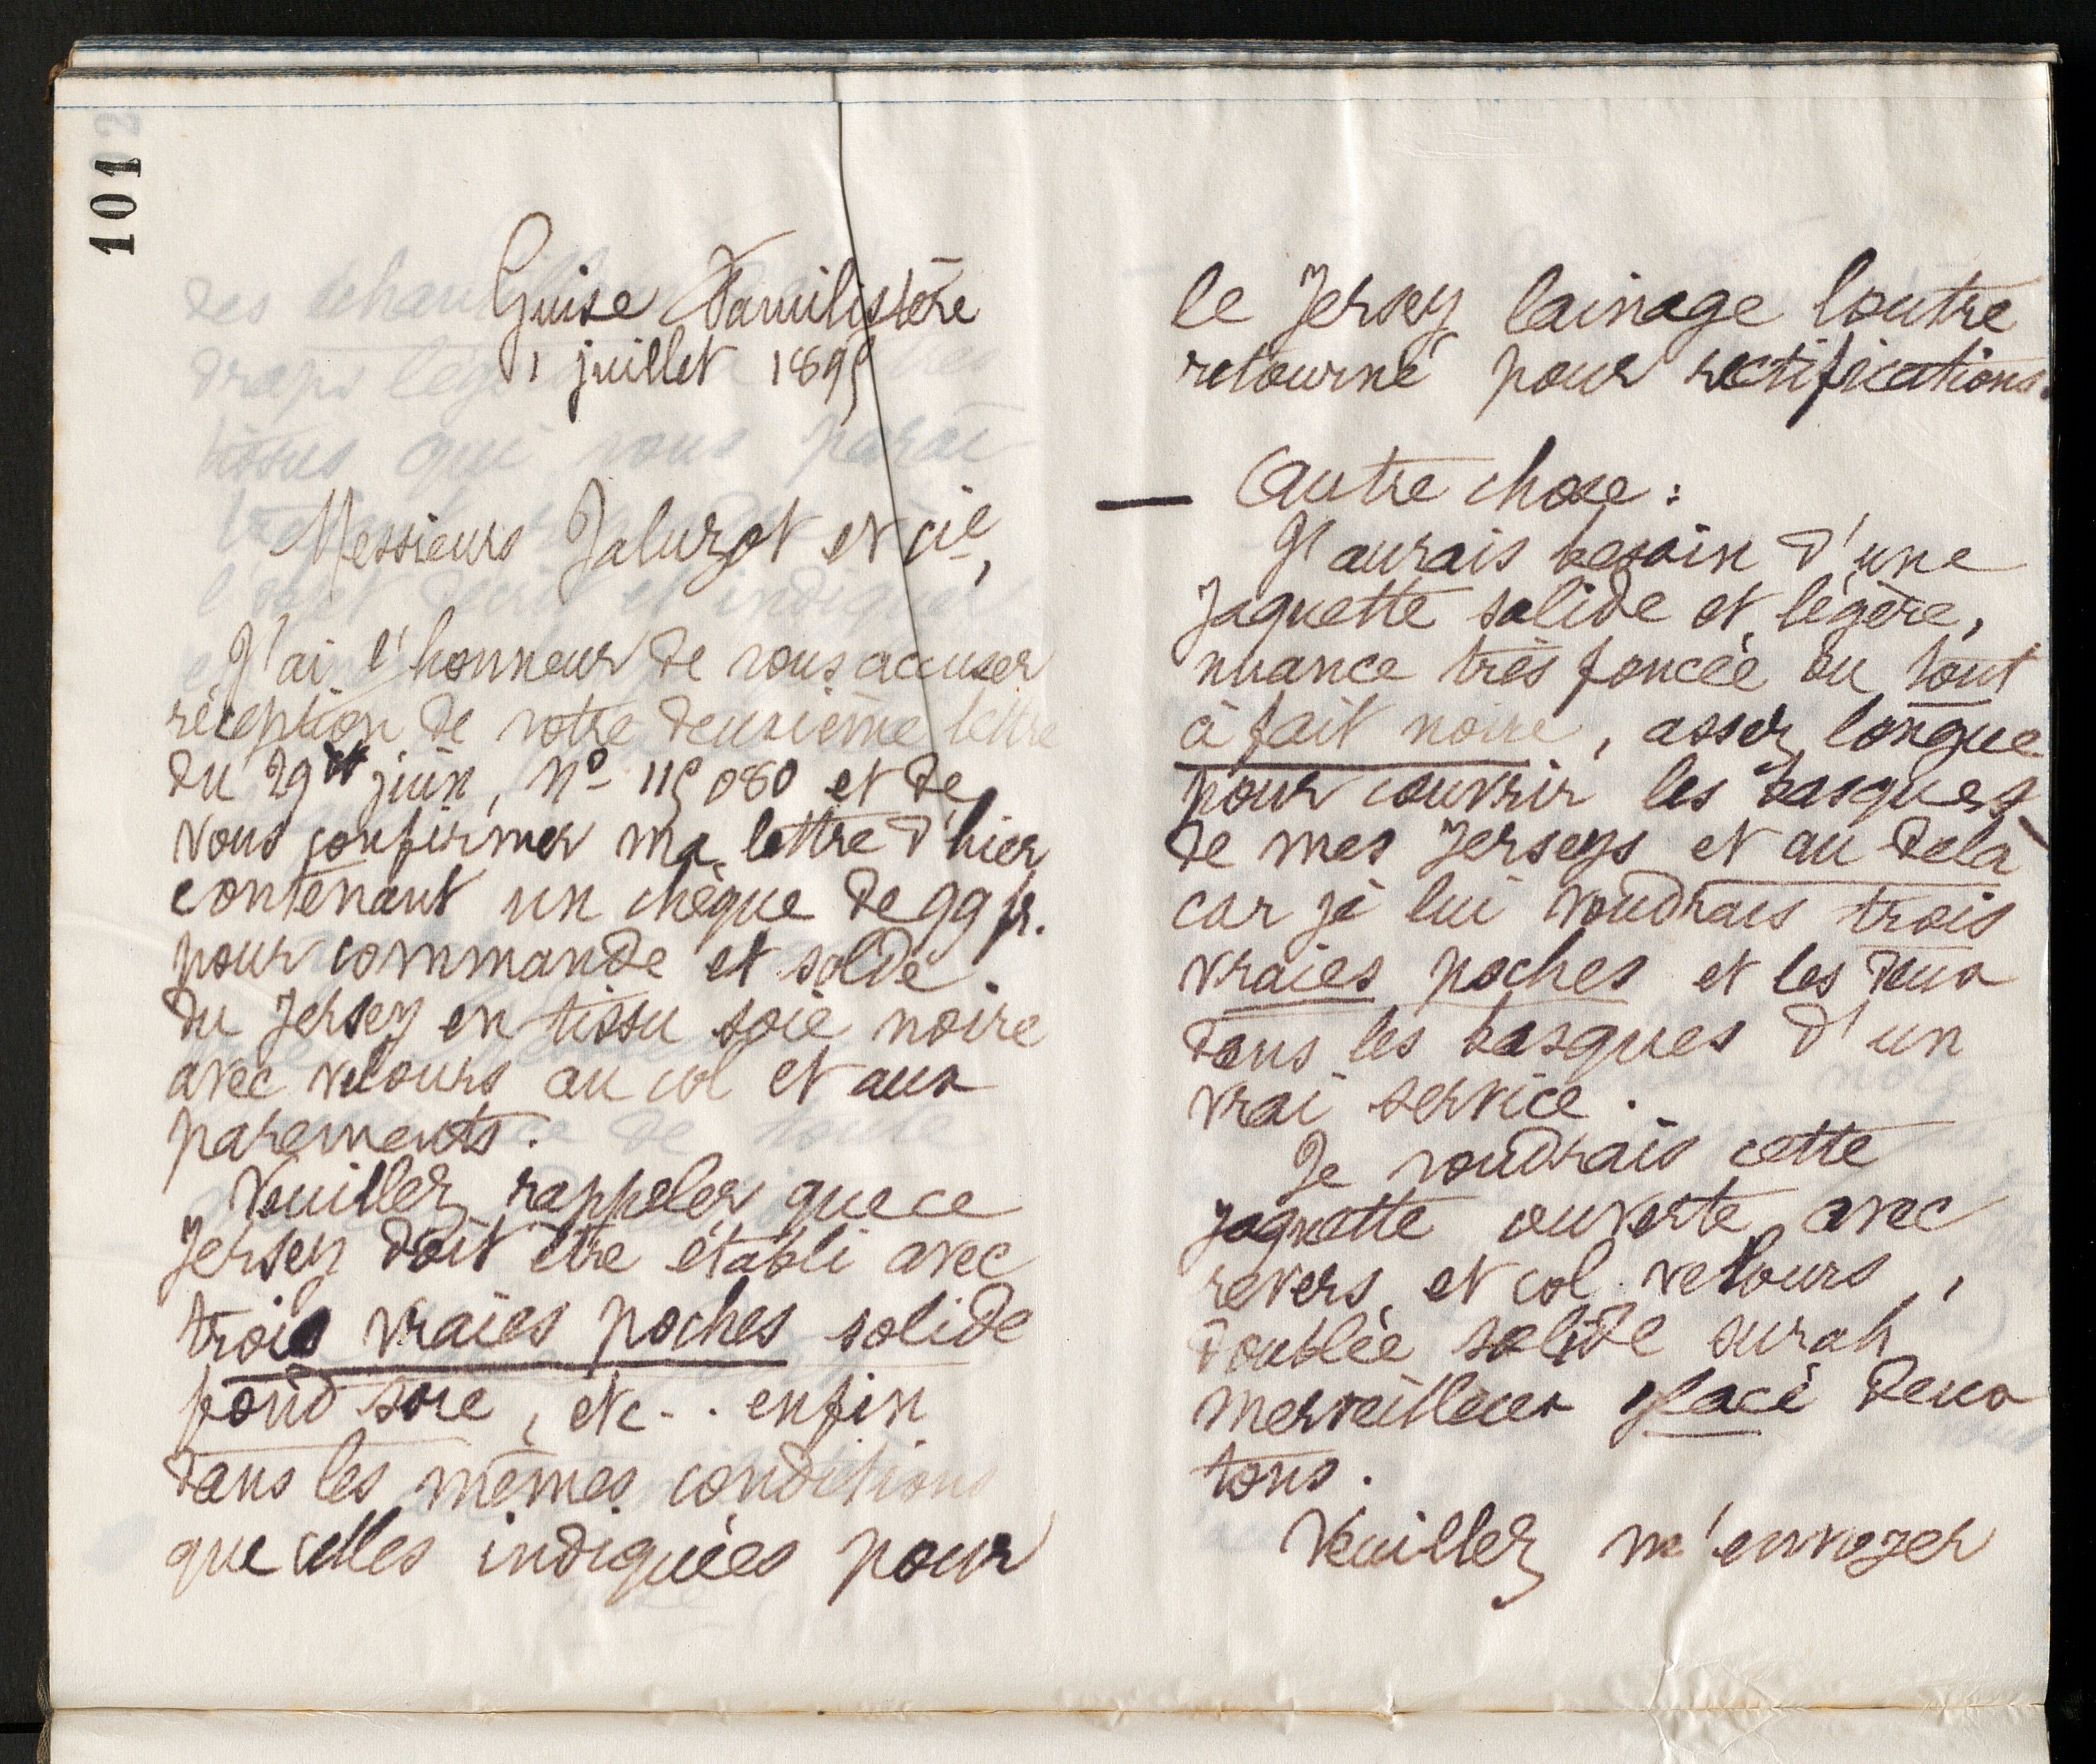 101
Guise Familistère
1 juillet 1895
Messieurs Jaluzot et cie,
J'ai l'honneur de vous accuser
réception de votre deuxième lettre
du 29 juin, No 115 080 et de
vous confirmer ma lettre d'hier
contenant un chèque de 99 fr.
pour commande et solde
du Jersey en tissu soie noire
avec velours au col et aux
parements.
Veuillez rappeler que ce
Jersey doit être établi avec
trois vraies poches solide
fond soie, etc.. enfin
dans les mêmes conditions
que celles indiquées pour
le Jersey lainage loutre
retourné pour rectifications.
— Autre chose :
J'aurais besoin d'une
Jaquette solide et légère,
nuance très foncée ou tout
à fait noire, assez longue
pour couvrir les basques
de mes Jerseys et au delà
car je lui voudrais trois
vraies poches et les deux
dans les basques d'un
vrai service.
Je voudrais cette
jaquette ouverte avec
revers et col velours,
doublée solide surah
merveilleux glacé deux
tons.
Veuillez m'envoyer